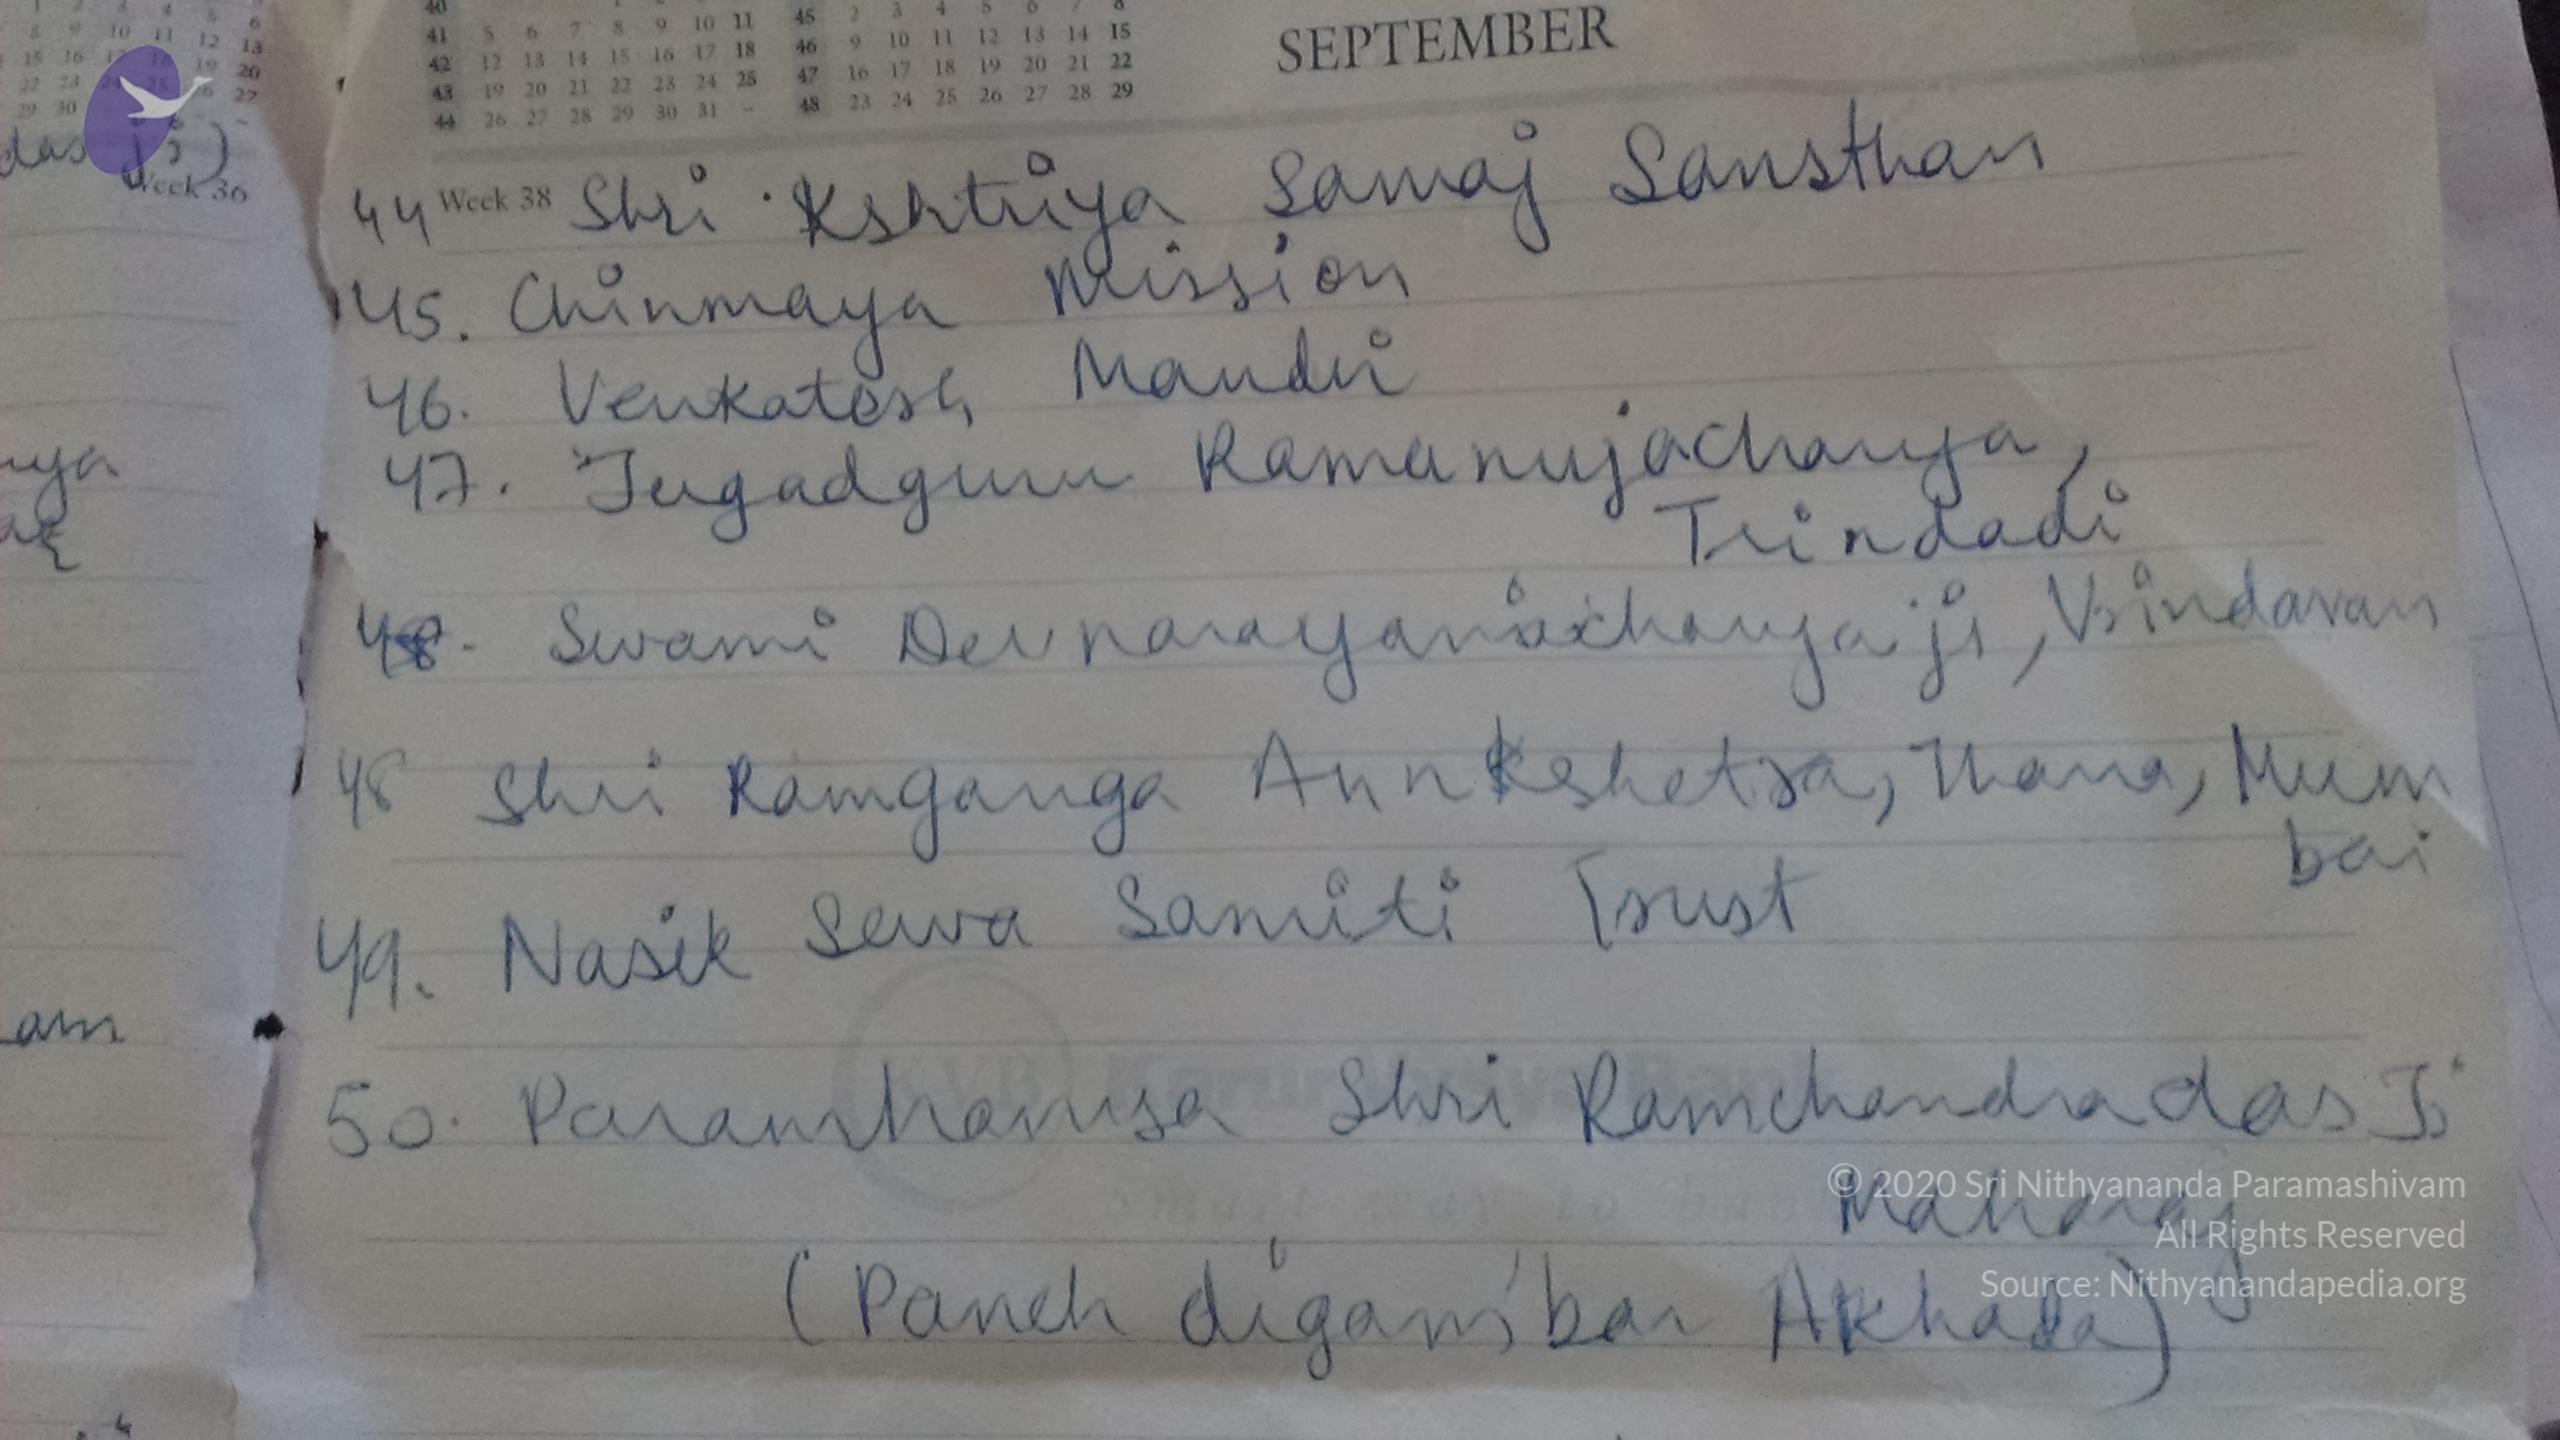 1 2 3 4 5 6
8 9 10 11 12 13
15 16 17 18 19 20
22 23 24 25 26 27
29 30
40
41 5 6 7 8 9 10 11
42 12 13 14 15 16 17 18
43 19 20 21 22 23 24 25
44 26 27 28 29 30 31 -
45 2 3 4 5 6 7 8
46 9 10 11 12 13 14 15
47 16 17 18 19 20 21 22
48 23 24 25 26 27 28 29
SEPTEMBER
das ji)
Week 36
44 Week 38 Shri Kshtriya Samaj Sansthan
45. Chinmaya Mission
46. Venkatesh Mandir
47. Jugadguru Ramanujacharya,
Trindadi
48. Swami Devnarayanacharyaji, Vrindavan
48 Shri Ramganga Annkshetra, Thana, Mum
bai
49. Nasik Sewa Samiti Trust
50. Paramhamsa Shri Ramchandradas Ji
Maharaj
(Panch digambar Akhada)
© 2020 Sri Nithyananda Paramashivam
All Rights Reserved
Source: Nithyanandapedia.org